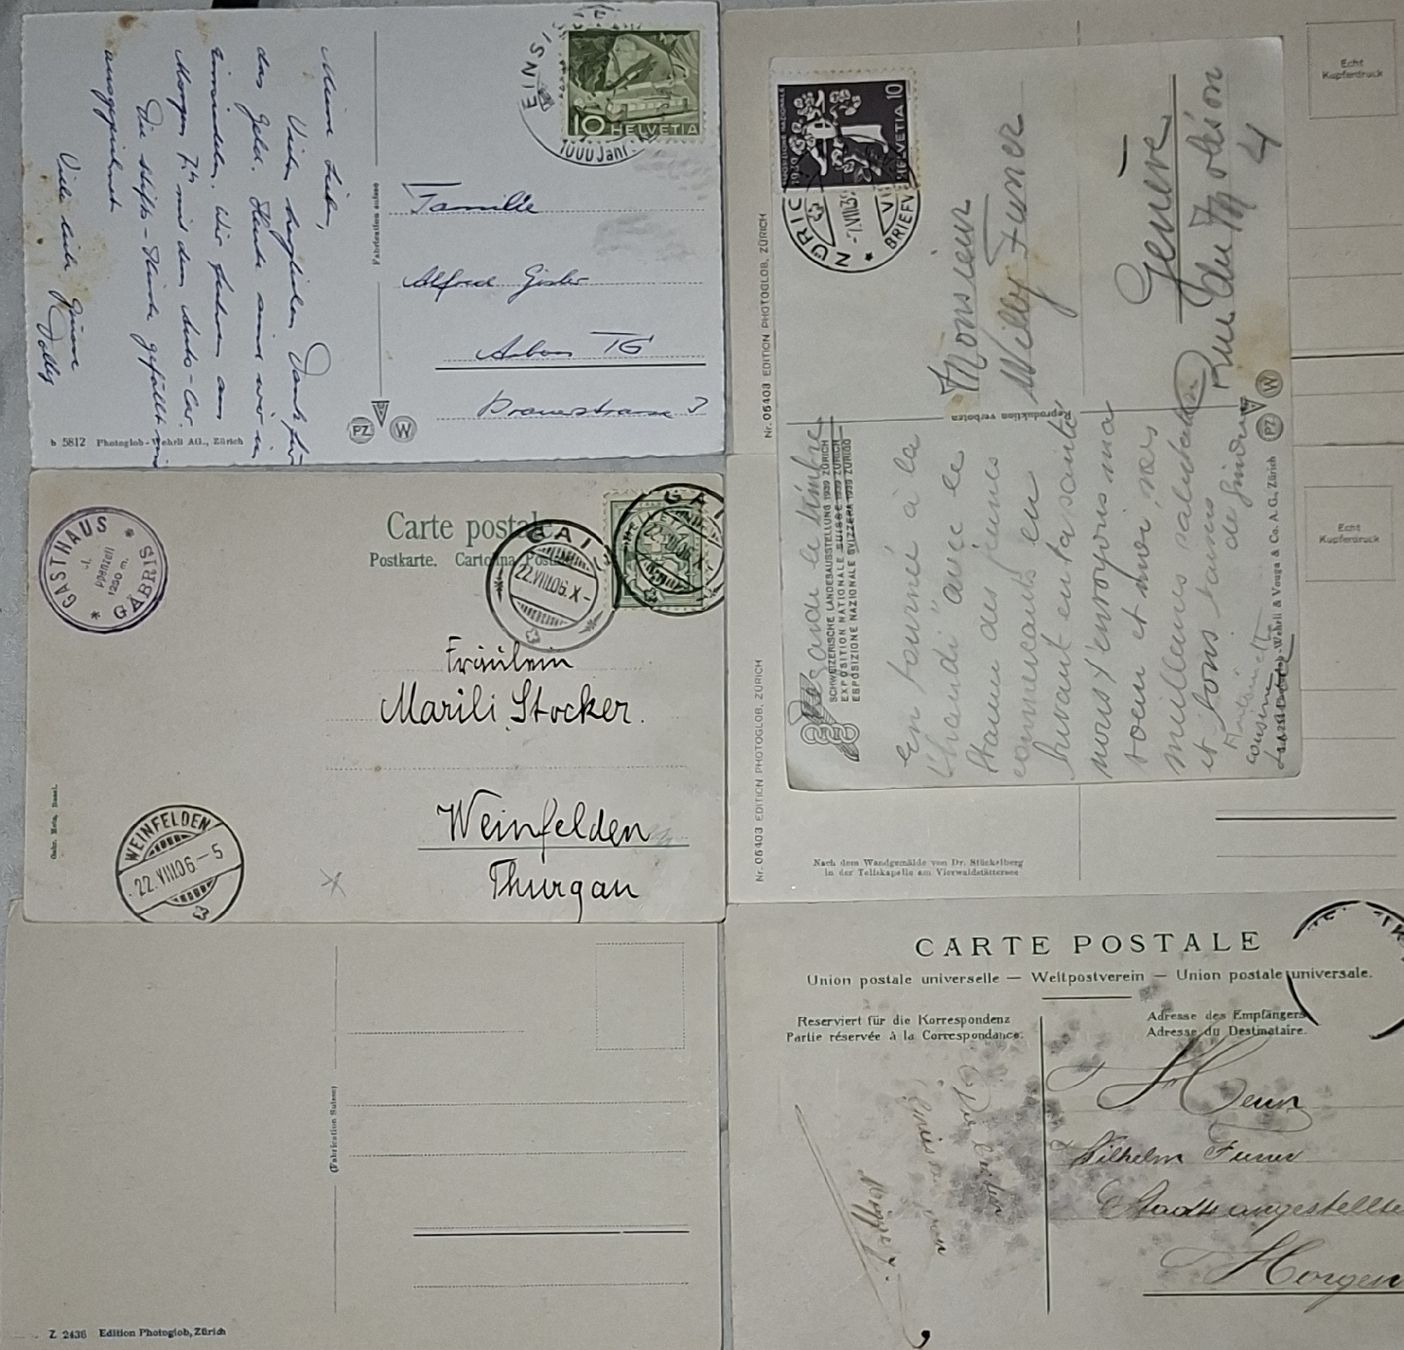 Meine Lieben,
Vielen herzlichen Dank für
das Geld. Heute sind wir in
Einsiedeln. Wir fahren am
Morgen 7 h mit dem Auto-Car.
Die Stifts-Kirche gefällt mir
ausgezeichnet
Viele liebe Grüsse
Fabrication suisse
EINSI
1000 Jahr
10 HELVETIA
Familie
Alfred Gisler
Arbon TG
b 5812 Photoglob-Wehrli AG., Zürich
PZ W
GASTHAUS
1250 m.
GÄBRIS
Carte postale
Postkarte. Cartolina Postale
GAIS
22.VIII.06.X-
GAI
22.VIII.06.X
Fräulein
Marili Stocker.
Weinfelden
Thurgau
WEINFELDEN
22.VIII.06-5
(Fabrication Suisse)
Z 2436 Edition Photoglob, Zürich
Echt
Kupferdruck
Nr. 06403 EDITION PHOTOGLOB, ZÜRICH
1939
HELVETIA 10
ZÜRICH
-7.VIII.39
BRIEFV
Monsieur
Willy Furrer
Genève
4
Reproduktion verboten
PZ W
Wehrli & Vouga & Co. A.G., Zürich
Regarde le timbre
SCHWEIZERISCHE LANDESAUSSTELLUNG 1939 ZÜRICH
EXPOSITION NATIONALE SUISSE 1939 ZURICH
ESPOSIZIONE NAZIONALE SVIZZERA 1939 ZURIGO
En tournée à la
"Landi" avec le
des jeunes
commerçants en
buvant en ta santé
nous t'envoyons ma
soeur et moi, nos
meilleures salutations
et bons baisers
de
cousine
Echt
Kupferdruck
Nr. 06403 EDITION PHOTOGLOB, ZÜRICH
Nach dem Wandgemälde von Dr. Stückelberg
in der Tellskapelle am Vierwaldstättersee
CARTE POSTALE
Union postale universelle — Weltpostverein — Unione postale universale.
Reserviert für die Korrespondenz
Partie réservée à la Correspondance.
Adresse des Empfängers
Adresse du Destinataire.
Herrn
Wilhelm Furrer
Stadtangestellter
Horgen